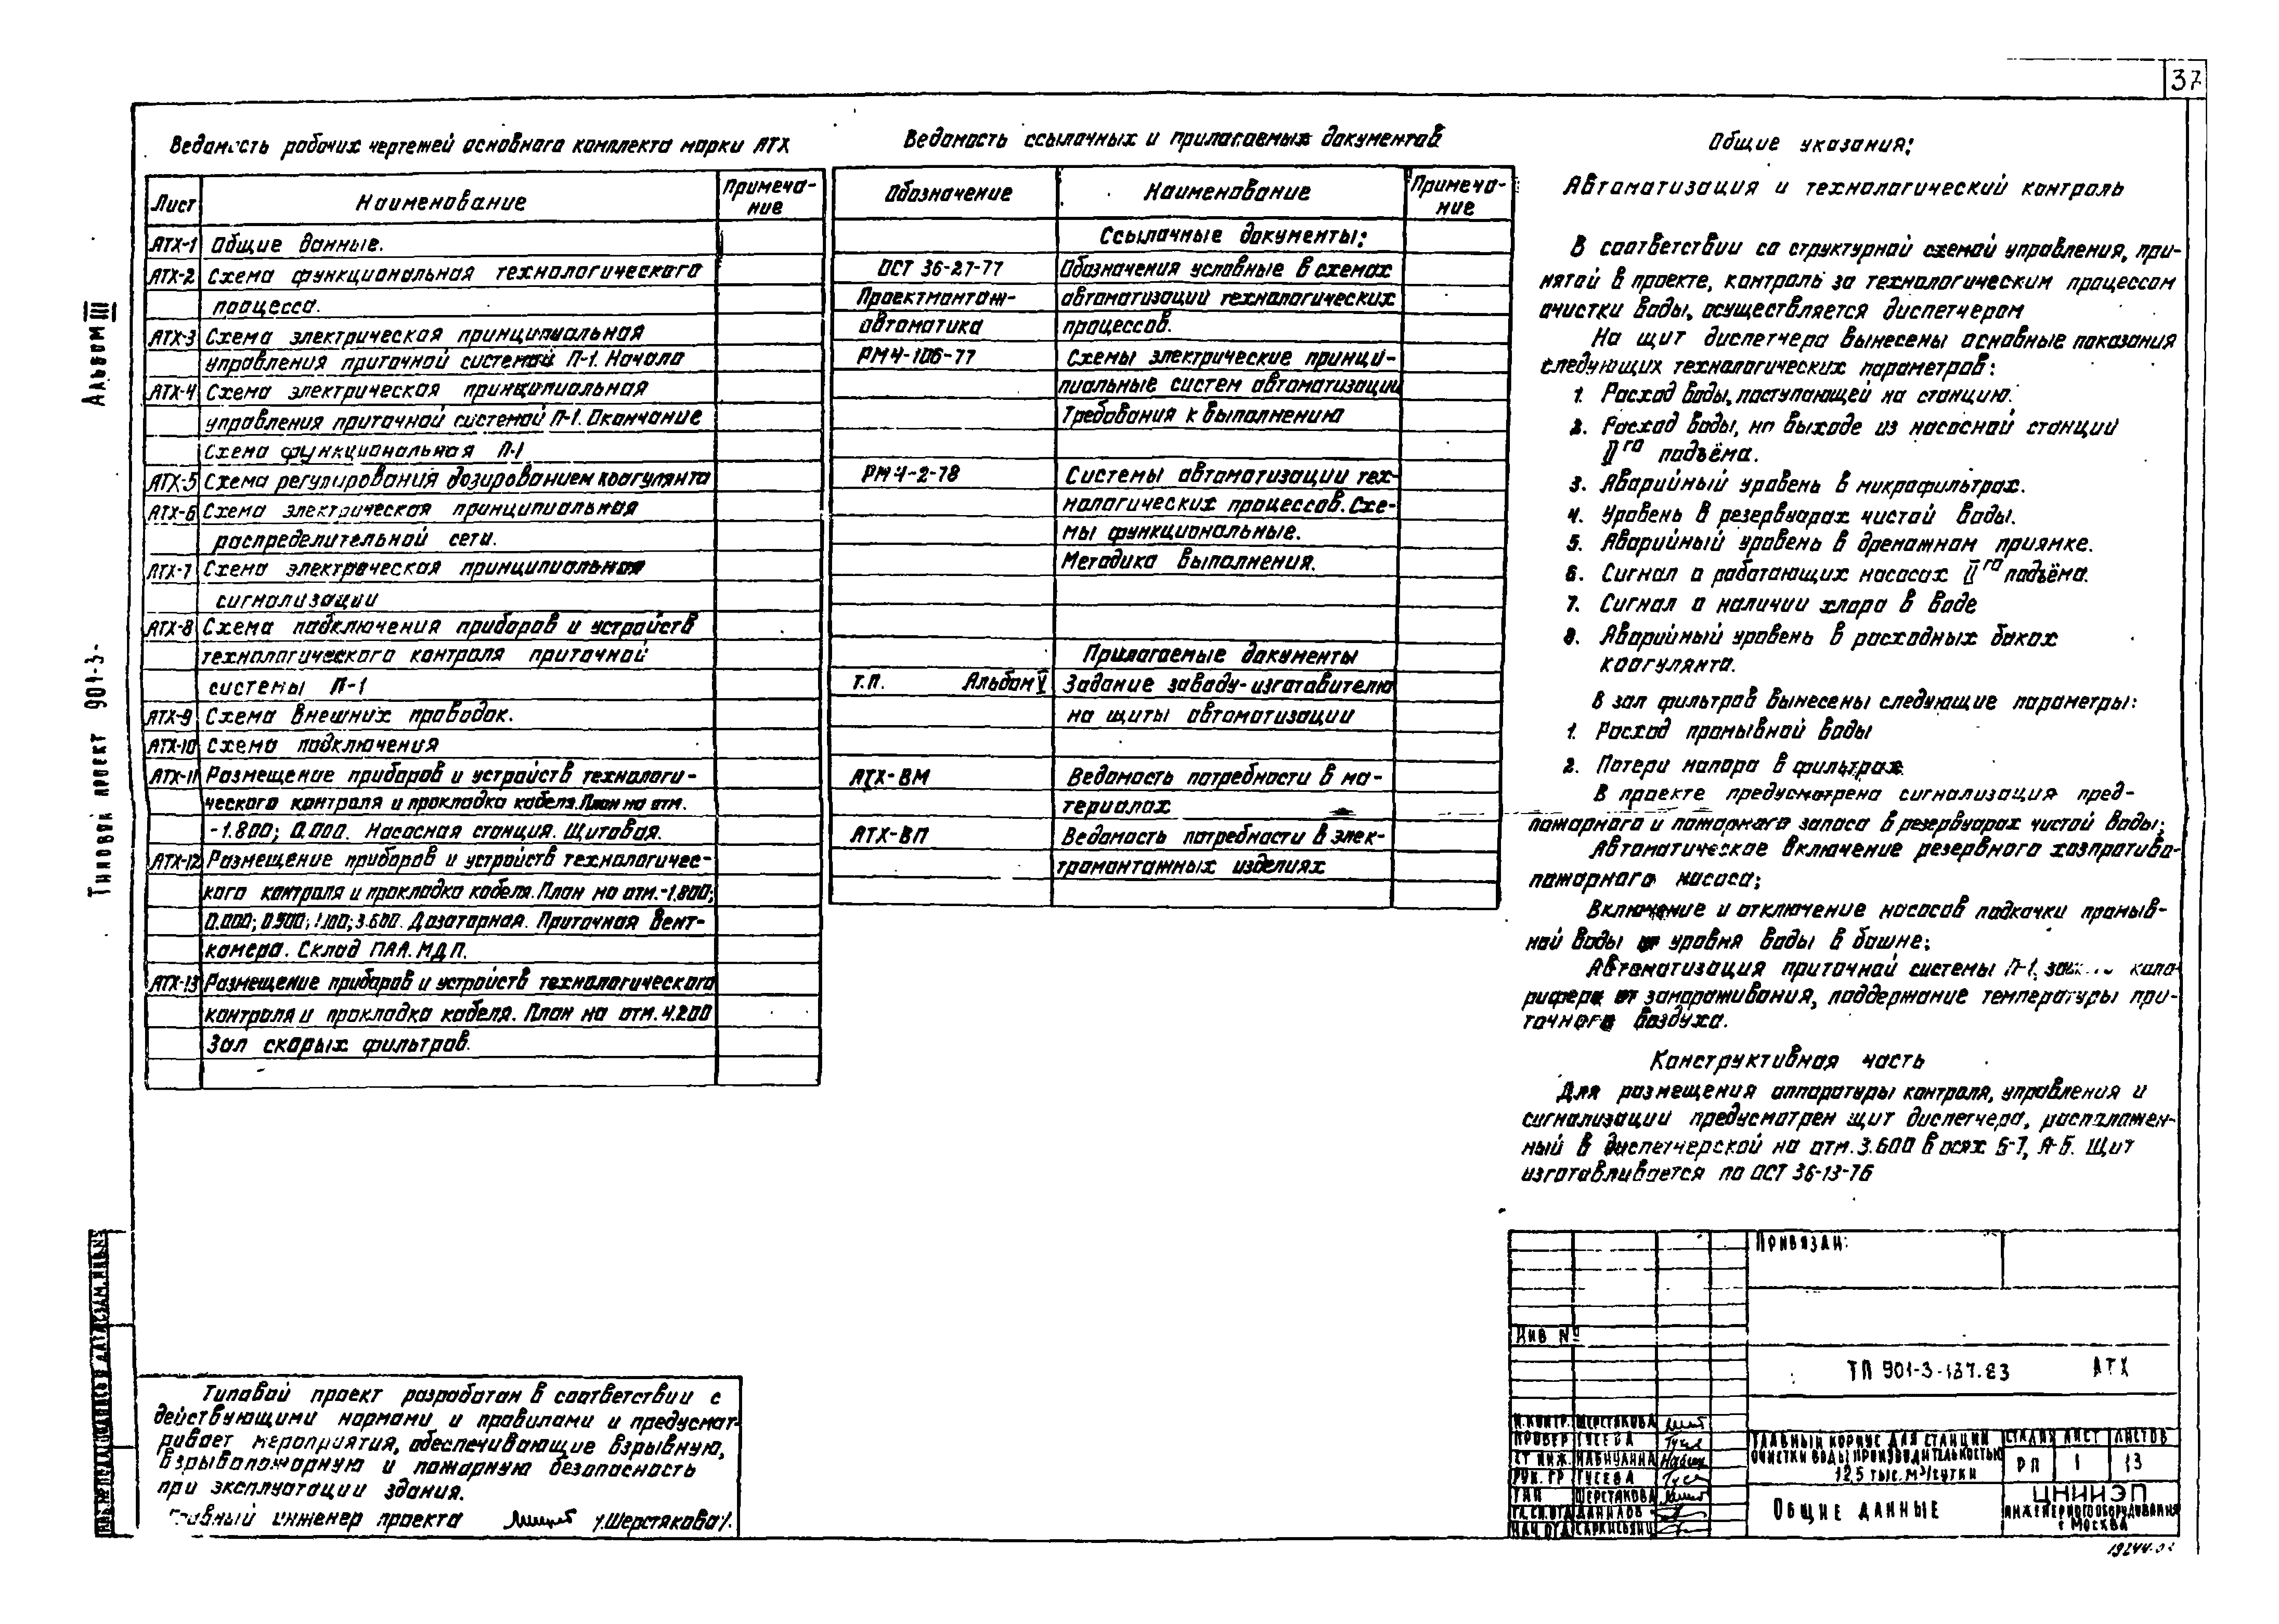 37
Ведомость рабочих чертежей основного комплекта марки АТХ
Лист Наименование Примеча-
ние
АТХ-1 Общие данные.
АТХ-2 Схема функциональная технологического
процесса.
АТХ-3 Схема электрическая принципиальная
управления приточной системой П-1. Начало
АТХ-4 Схема электрическая принципиальная
управления приточной системой П-1. Окончание
Схема функциональная П-1
АТХ-5 Схема регулирования дозированием коагулянта
АТХ-6 Схема электрическая принципиальная
распределительной сети.
АТХ-7 Схема электрическая принципиальная
сигнализации
АТХ-8 Схема подключения приборов и устройств
технологического контроля приточной
системы П-1
АТХ-9 Схема внешних проводок.
АТХ-10 Схема подключения
АТХ-11 Размещение приборов и устройств технологи-
ческого контроля и прокладка кабеля. План на отм.
-1.800; 0.000. Насосная станция. Щитовая.
АТХ-12 Размещение приборов и устройств технологичес-
кого контроля и прокладка кабеля. План на отм.-1.800;
0.000; 0.900; 1.100; 3.600. Дозаторная. Приточная вент-
камера. Склад ПАА. МДП.
АТХ-13 Размещение приборов и устройств технологического
контроля и прокладка кабеля. План на отм. 4.200
Зал скорых фильтров.
Ведомость ссылочных и прилагаемых документов
Обозначение Наименование Примеча-
ние
Ссылочные документы:
ОСТ 36-27-77 Обозначения условные в схемах
Проектмонтаж- автоматизации технологических
автоматика процессов.
РМ4-106-77 Схемы электрические принци-
пиальные систем автоматизации
Требования к выполнению
РМ4-2-78 Системы автоматизации тех-
нологических процессов. Схе-
мы функциональные.
Методика выполнения.
Прилагаемые документы
Т.П. Альбом V Задание заводу-изготовителю
на щиты автоматизации
АТХ-ВМ Ведомость потребности в ма-
териалах
АТХ-ВП Ведомость потребности в элек-
тромонтажных изделиях
Общие указания:
Автоматизация и технологический контроль
В соответствии со структурной схемой управления, при-
нятой в проекте, контроль за технологическим процессом
очистки воды, осуществляется диспетчером
На щит диспетчера вынесены основные показания
следующих технологических параметров:
1. Расход воды, поступающей на станцию.
2. Расход воды, на выходе из насосной станции
II го подъёма.
3. Аварийный уровень в микрофильтрах.
4. Уровень в резервуарах чистой воды.
5. Аварийный уровень в дренажном приямке.
6. Сигнал о работающих насосах II го подъёма.
7. Сигнал о наличии хлора в воде
8. Аварийный уровень в расходных баках
коагулянта.
В зал фильтров вынесены следующие параметры:
1. Расход промывной воды
2. Потери напора в фильтрах
В проекте предусмотрена сигнализация пред-
пожарного и пожарного запаса в резервуарах чистой воды;
Автоматическое включение резервного хозпротиво-
пожарного насоса;
Включение и отключение насосов подкачки промыв-
ной воды от уровня воды в башне;
Автоматизация приточной системы П-1, кало
рифера от замораживания, поддержание температуры при-
точного воздуха.
Конструктивная часть
Для размещения аппаратуры контроля, управления и
сигнализации предусмотрен щит диспетчера, расположен-
ный в диспетчерской на отм. 3.600 в осях 6-7, А-Б. Щит
изготавливается по ОСТ 36-13-76
Альбом III
Типовой проект 901-3-
Типовой проект разработан в соответствии с
действующими нормами и правилами и предусмат-
ривает мероприятия, обеспечивающие взрывную,
взрывопожарную и пожарную безопасность
при эксплуатации здания.
Главный инженер проекта /Шерстякова/.
Привязан:
Инв №
ТП 901-3-187.83 АТХ
Н.контр. Шерстякова
Провер Гусева
Ст инж. Набиулина
Рук. гр Гусева
ГИП Шерстякова
Гл.сп.отд Данилов
Нач.отд Саркисьянц
Главный корпус для станции
очистки воды производительностью
12.5 тыс. м³/сутки
Стадия Лист Листов
РП 1 13
Общие данные
ЦНИИЭП
инженерного оборудования
г Москва